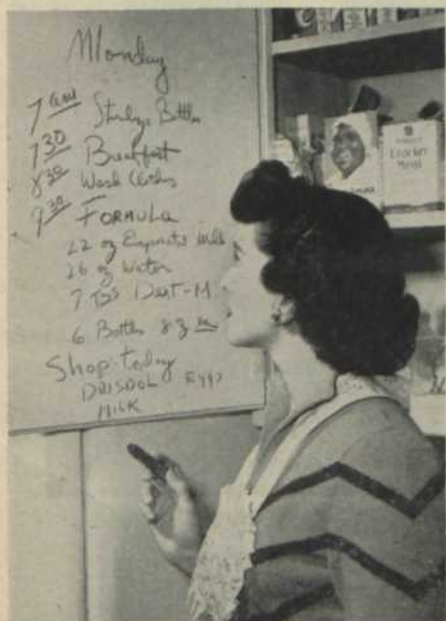 Monday
7 am Sterilize Bottles
7 30 Breakfast
8 30 Wash Clothes
9 30 FORMULA
22 oz Evaporate milk
26 oz Water
7 TBS Dext-M.
6 Bottles 8 oz
Shop today
DRISDOL Eggs
MILK
Cracker
Meal